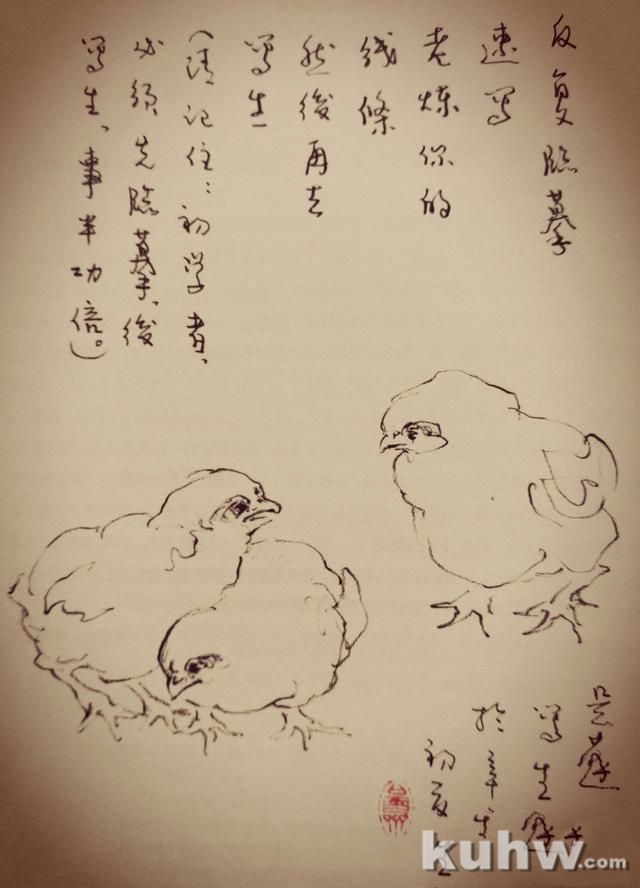 反复临摹
速写
老炼你的
线條
然後再去
写生
(请记住：初学者、
必须先临摹、後
写生、事半功倍。)
写生
於辛
初夏
kuhw.com